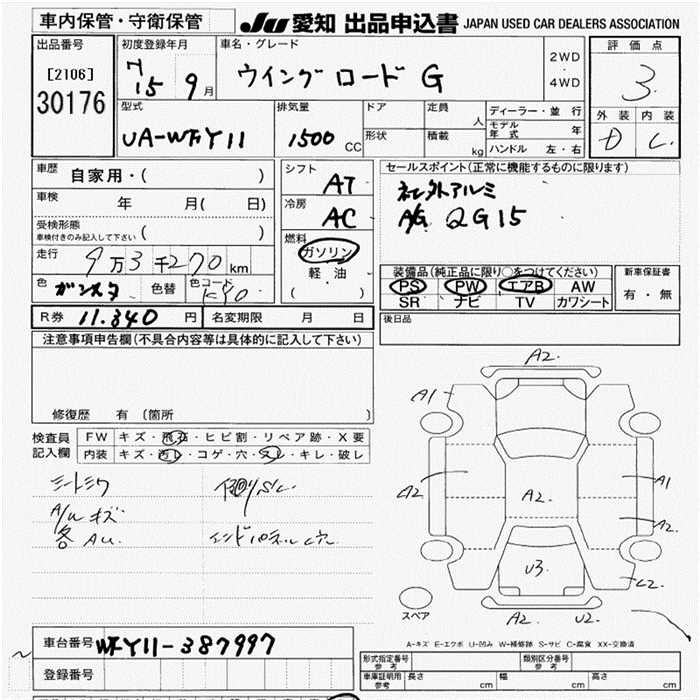 車内保管・守衛保管
JU 愛知 出品申込書 JAPAN USED CAR DEALERS ASSOCIATION
出品番号
[2106]
30176
初度登録年月
H 15 9月
車名・グレード
ウイングロード G
2WD
・
4WD
評価点
3
外装 内装
D C
型式
UA-WFY11
排気量
1500 CC
ドア
形状
定員 人
積載 kg
ディーラー・並行
モデル年式 年
ハンドル 左・右
車歴 自家用・( )
車検 年 月( 日)
受検形態
車検付きのみ記入して下さい ( )
走行 9万3千270km
色 ガンメタ 色替 色コード KY0
シフト AT
冷房 AC
燃料
ガソリン
軽油
( )
セールスポイント(正常に機能するものに限ります)
社外アルミ
A/G 2G15
装備品(純正品に限り○をつけてください)
PS PW エアB AW
SR ナビ TV カワシート
新車保証書
有・無
R券 11.340 円 名変期限 月 日
後日品
注意事項申告欄(不具合内容等は具体的に記入して下さい)
修復歴 有 (箇所 )
検査員 FW キズ・飛石・ヒビ割・リペア跡・X要
記入欄 内装 キズ・汚レ・コゲ・穴・スレ・キレ・破レ
シートシワ
A/W キズ
各AU.
A2.
A1
A2
A2.
A1
A2.
U3
C2.
A2. U2.
スペア
A-キズ E-エクボ U-凹み W-補修跡 S-サビ C-腐食 XX-交換済
車台番号 WFY11-387997
登録番号
形式指定番号 参考
類別区分番号 参考
車庫証明用 参考 長さ cm 幅 cm 高さ cm